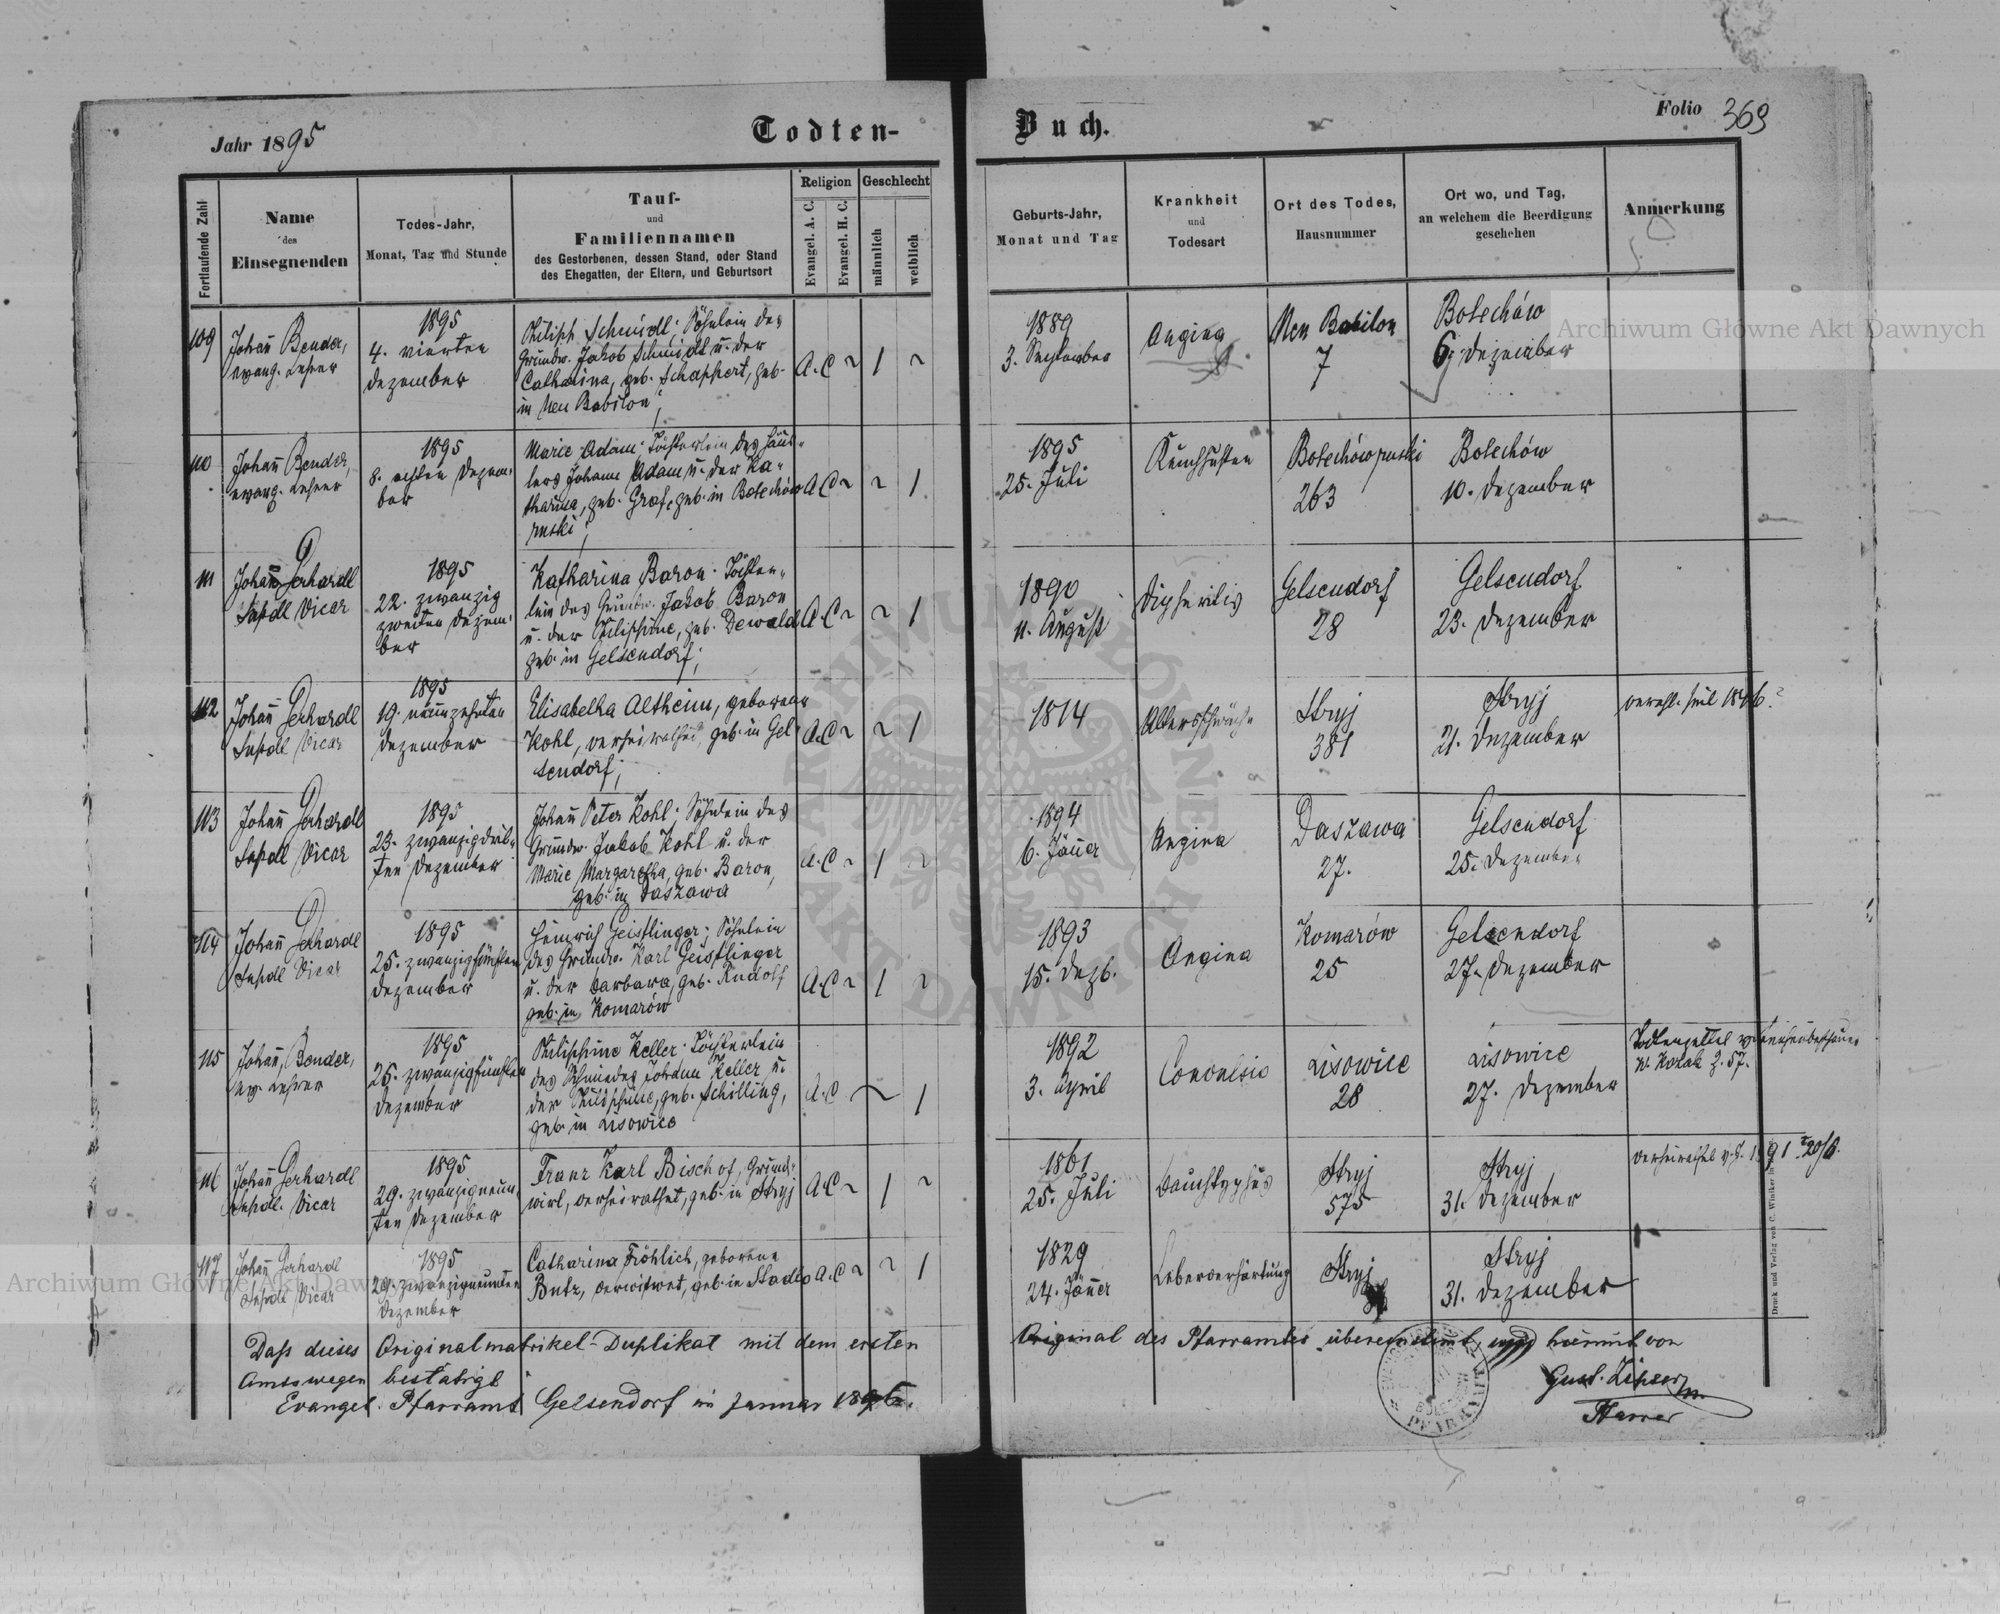 Jahr 1895
Todten-
Buch.
Folio 369
Fortlaufende Zahl
Name
des
Einsegnenden
Todes-Jahr,
Monat, Tag und Stunde
Tauf-
und
Familiennamen
des Gestorbenen, dessen Stand, oder Stand
des Ehegatten, der Eltern, und Geburtsort
Religion
Evangel. A. C.
Evangel. H. C.
Geschlecht
männlich
weiblich
Geburts-Jahr,
Monat und Tag
Krankheit
und
Todesart
Ort des Todes,
Hausnummer
Ort wo, und Tag,
an welchem die Beerdigung
geschehen
Anmerkung
109
Johañ Bender,
evang. Lehrer
1895
4. vierten
Dezember
Philipp Schmidt; Söhnlein des
Grundw. Jakob Schmidt u. der
Catharina, geb. Schappert, geb.
in Neu Babilon;
A.C ~ 1 ~
1889
3. September
Angina
Neu Babilon
7
Bolechów
6. Dezember
110
Johañ Bender,
evang. Lehrer
1895
8. achten Dezem-
ber
Marie Adam; Töchterlein des Häus-
lers Johann Adam u. der Ka-
tharina, geb. Graf, geb. in Bolechów
ruski;
A.C ~ ~ 1
1895
25. Juli
Keuchhusten
Bolechów ruski
263
Bolechów
10. Dezember
111
Johañ Gerhardt
Supdl Vicar
1895
22. zwanzig
zweiten Dezem-
ber
Katharina Baron; Töchter-
lein des Grundw. Jakob Baron
u. der Philippine, geb. Dewald
geb. in Gelsendorf;
A.C ~ ~ 1
1890
11. August
Dipheritis
Gelsendorf
28
Gelsendorf
23. Dezember
112
Johañ Gerhardt
Supdl Vicar
1895
19. neunzehnten
Dezember
Elisabetha Altheim, geborene
Kohl, verheirathet, geb. in Gel-
sendorf;
A.C ~ ~ 1
1814
Altersschwäche
Stryj
381
Stryj
21. Dezember
113
Johañ Gerhardt
Supdl Vicar
1895
23. zwanzigdrit-
ten Dezember
Johañ Peter Kohl; Söhnlein des
Grundw. Jakob Kohl u. der
Marie Margaretha, geb. Baron,
geb. in Daszawa
A.C ~ 1 ~
1894
6. Jäner
Angina
Daszawa
27.
Gelsendorf
25. Dezember
114
Johañ Gerhardt
Supdl Vicar
1895
25. zwanzigfünften
Dezember
Heinrich Geistlinger; Söhnlein
des Grundw. Karl Geistlinger
u. der Barbara, geb. Rudolf
geb. in Komarów
A.C ~ 1 ~
1893
15. Dezb.
Angina
Komarów
25
Gelsendorf
27. Dezember
115
Johañ Bender,
ev. Lehrer
1895
25. zwanzigfünften
Dezember
Philippine Keller; Töchterlein
des Schmiedes Johann Keller u.
der Philippine, geb. Schilling,
geb. in Lisowice
A.C ~ 1
1892
3. April
Convulsio
Lisowice
28
Lisowice
27. Dezember
Todtenzettel
57.
116
Johañ Gerhardt
Supdl. Vicar
1895
29. zwanzigneun-
ten Dezember
Franz Karl Bischof, Grund-
wirt, verheirathet, geb. in Stryj
A.C ~ 1 ~
1861
25. Juli
Bauchtyphus
Stryj
575
Stryj
31. Dezember
117
Johañ Gerhardt
Supdl Vicar
1895
29. zwanzigneunten
Dezember
Catharina Fröhlich, geborene
Butz, verwitwet, geb. in Stadlo
A.C ~ ~ 1
1829
24. Jäner
Leberverhärtung
Stryj
Stryj
31. Dezember
Dass dieses Originalmatrikel-Duplikat mit dem ersten Original des Pfarramtes übereinstimt, wird hiemit von
Amtswegen bestätigt
Evangel. Pfarramt Gelsendorf im Januar 1896.
Gust. Lipser
Pfarrer
Druck und Verlag von C. Winiker in
Archiwum Główne Akt Dawnych
Archiwum Główne Akt Dawnych
ARCHIWUM GŁÓWNE AKT DAWNYCH